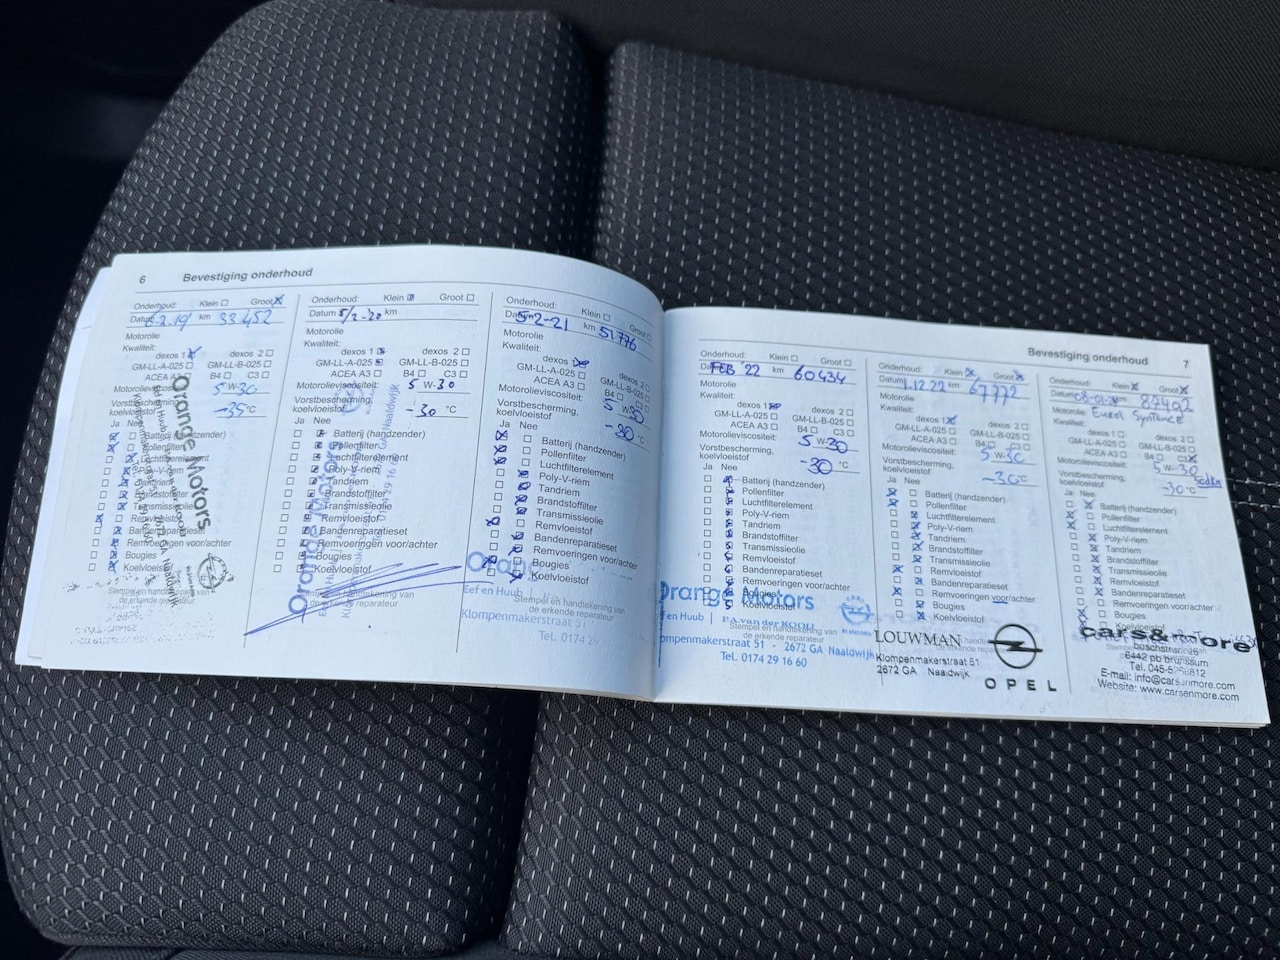 6 Bevestiging onderhoud
Onderhoud: Klein Groot
Datum 6-2-19 km 33452
Motorolie
Kwaliteit:
dexos 1 dexos 2
GM-LL-A-025 GM-LL-B-025
ACEA A3 B4 C3
Motorolieviscositeit: 5 W-30
Vorstbescherming,
koelvloeistof -35 °C
Ja Nee
Batterij (handzender)
Pollenfilter
Luchtfilterelement
Poly-V-riem
Tandriem
Brandstoffilter
Transmissieolie
Remvloeistof
Bandenreparatieset
Remvoeringen voor/achter
Bougies
Koelvloeistof
Orange Motors
de erkende reparateur
Onderhoud: Klein Groot
Datum 5/2-20 km
Motorolie
Kwaliteit:
dexos 1 dexos 2
GM-LL-A-025 GM-LL-B-025
ACEA A3 B4 C3
Motorolieviscositeit: 5 W-30
Vorstbescherming,
koelvloeistof -30 °C
Ja Nee
Batterij (handzender)
Pollenfilter
Luchtfilterelement
Poly-V-riem
Tandriem
Brandstoffilter
Transmissieolie
Remvloeistof
Bandenreparatieset
Remvoeringen voor/achter
Bougies
Koelvloeistof
Orange Motors
Stempel en handtekening van
de erkende reparateur
Onderhoud: Klein Groot
Datum 5-2-21 km 51776
Motorolie
Kwaliteit:
dexos 1 dexos 2
GM-LL-A-025 GM-LL-B-025
ACEA A3 B4 C3
Motorolieviscositeit: 5 W-30
Vorstbescherming,
koelvloeistof -30 °C
Ja Nee
Batterij (handzender)
Pollenfilter
Luchtfilterelement
Poly-V-riem
Tandriem
Brandstoffilter
Transmissieolie
Remvloeistof
Bandenreparatieset
Remvoeringen voor/achter
Bougies
Koelvloeistof
Orange
Eef en Huub
Stempel en handtekening van
de erkende reparateur
Klompenmakerstraat
Tel. 0174 29
Bevestiging onderhoud 7
Onderhoud: Klein Groot
FEB 22 km 60434
Motorolie
Kwaliteit:
dexos 1 dexos 2
GM-LL-A-025 GM-LL-B-025
ACEA A3 B4 C3
Motorolieviscositeit: 5 W-30
Vorstbescherming,
koelvloeistof -30 °C
Ja Nee
Batterij (handzender)
Pollenfilter
Luchtfilterelement
Poly-V-riem
Tandriem
Brandstoffilter
Transmissieolie
Remvloeistof
Bandenreparatieset
Remvoeringen voor/achter
Bougies
Koelvloeistof
Orange Motors
ef en Huub | P.A. van der KOOIJ
Stempel en handtekening van
de erkende reparateur
ompenmakerstraat 51 - 2672 GA Naaldwijk
Tel. 0174 29 16 60
Onderhoud: Klein Groot
Datum 1.12.22 km 67772
Motorolie
Kwaliteit:
dexos 1 dexos 2
GM-LL-A-025 GM-LL-B-025
ACEA A3 B4 C3
Motorolieviscositeit: 5 W-30
Vorstbescherming,
koelvloeistof -30 °C
Ja Nee
Batterij (handzender)
Pollenfilter
Luchtfilterelement
Poly-V-riem
Tandriem
Brandstoffilter
Transmissieolie
Remvloeistof
Bandenreparatieset
Remvoeringen voor/achter
Bougies
Koelvloeistof
LOUWMAN
Klompenmakerstraat 51
2672 GA Naaldwijk
OPEL
Onderhoud: Klein Groot
Datum 08-01-24 km 87492
Motorolie
Kwaliteit:
dexos 1 dexos 2
GM-LL-A-025 GM-LL-B-025
ACEA A3 B4 C3
Motorolieviscositeit: 5 W-30
Vorstbescherming,
koelvloeistof -30 °C
Ja Nee
Batterij (handzender)
Pollenfilter
Luchtfilterelement
Poly-V-riem
Tandriem
Brandstoffilter
Transmissieolie
Remvloeistof
Bandenreparatieset
Remvoeringen voor/achter
Bougies
Koelvloeistof
cars& more
6442 pb brunssum
E-mail: info@carsenmore.com
Website: www.carsenmore.com